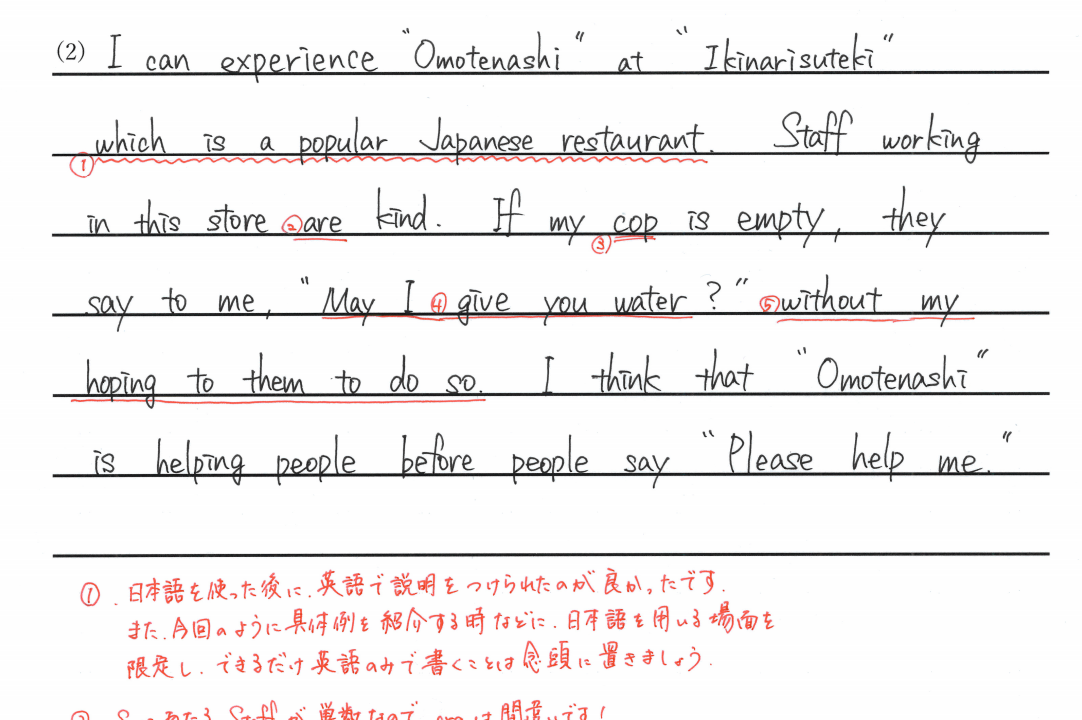 (2) I can experience "Omotenashi" at "Ikinarisuteki"
① which is a popular Japanese restaurant. Staff working
in this store ② are kind. If my ③ cop is empty, they
say to me, "May I ④ give you water?" ⑤ without my
hoping to them to do so. I think that "Omotenashi"
is helping people before people say "Please help me."
①. 日本語を使った後に、英語で説明をつけられたのが良かったです.
また、今回のように具体例を紹介する時などに、日本語を用いる場面を
限定し、できるだけ英語のみで書くことは念頭に置きましょう.
② Sにあたる Staff が 単数なので areは間違いです!